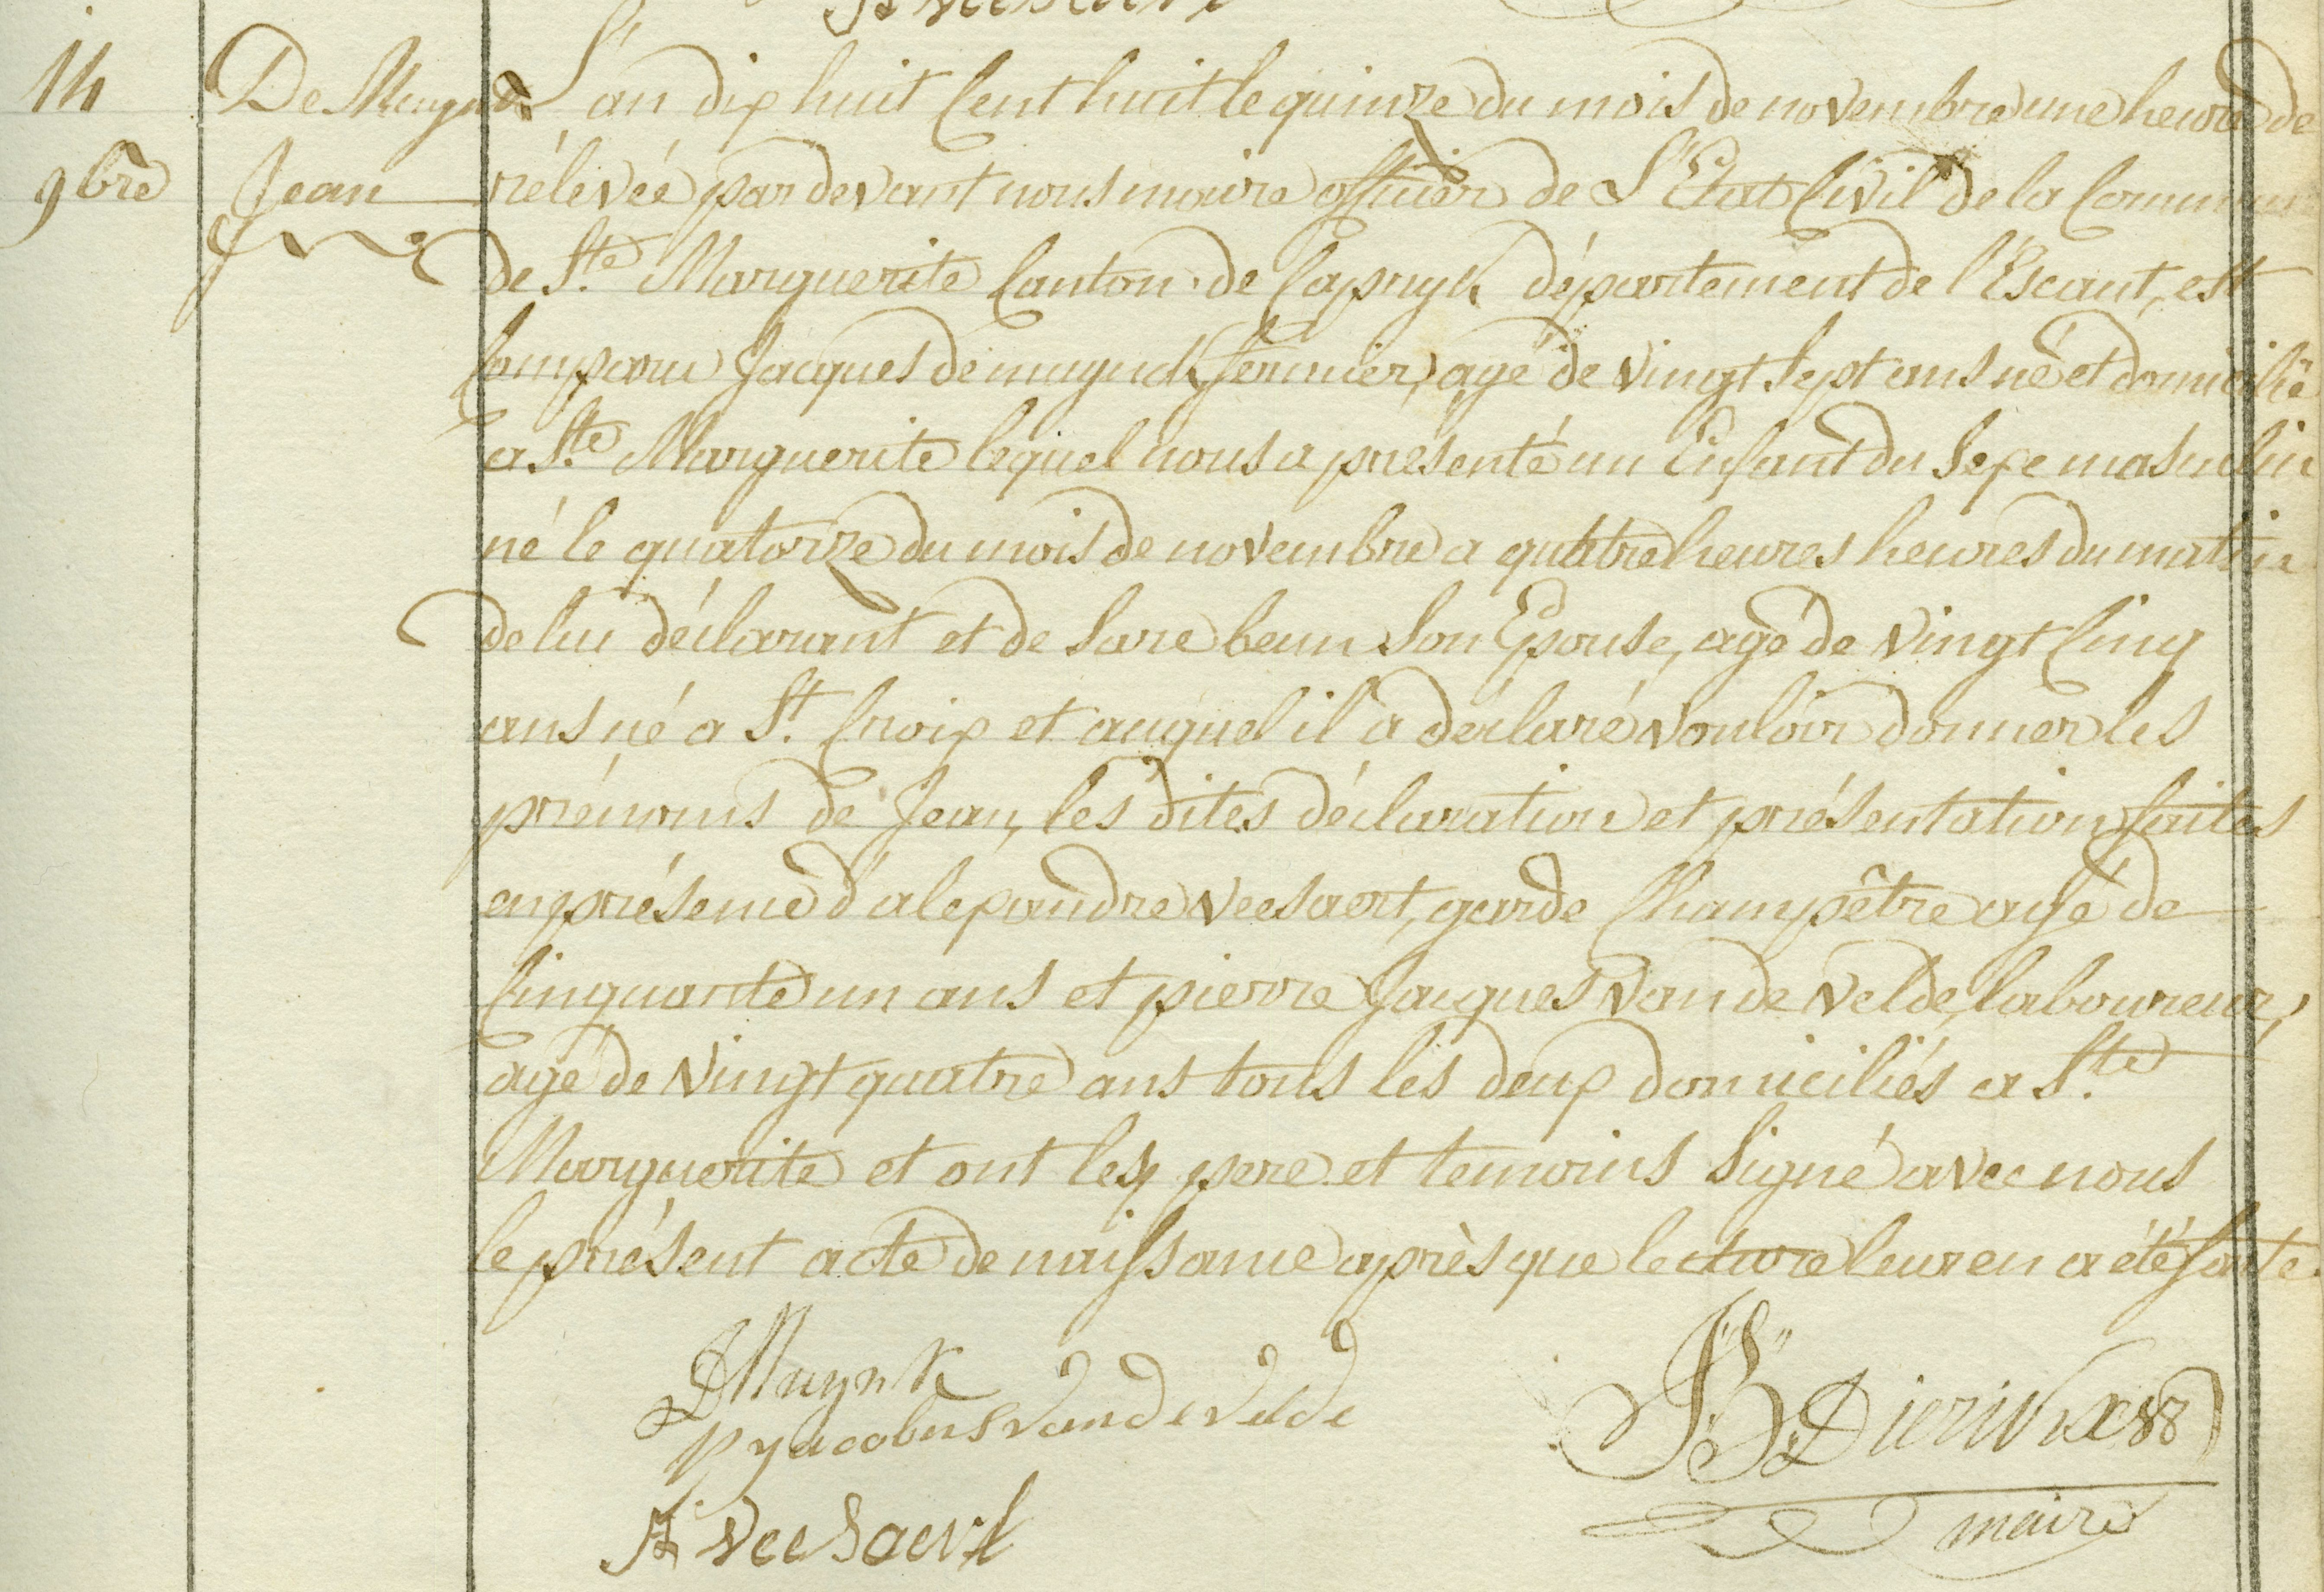 14
9bre
De Muynck
Jean
L'an dix huit Cent huit le quinze du mois de novembre une heure de
rélévéé par devant nous maire officier de L'Etat Civil de la Commune
de Ste Marguerite Canton de Capryk département de l'Escaut, est
Comparu Jacques demuynck fermier, agé de vingt sept ans né et domicilié
a Ste Marguerite lequel nous a présenté un Enfant du Sexe masculin
né le quatorze du mois de novembre a quatre heures heures du matin
de lui déclarant et de Sare beun Son Epouse, agé de vingt Cinq
ans né a St. Croix et auquel il a déclaré vouloir donner les
prénoms de Jean, les dites déclaration et présentation faites
en présence d'alexandre veesaert, garde Champêtre agé de
Cinquante un ans et pierre Jacques van de velde, laboureur,
agé de vingt quatre ans tous les deux domiciliés a Ste
Marguerite et ont les pere et temoins Signé avec nous
le présent acte de naissance après que lecture leur en a été faite.
DMuynk
p yacobus van de velde
A veesaert
maire